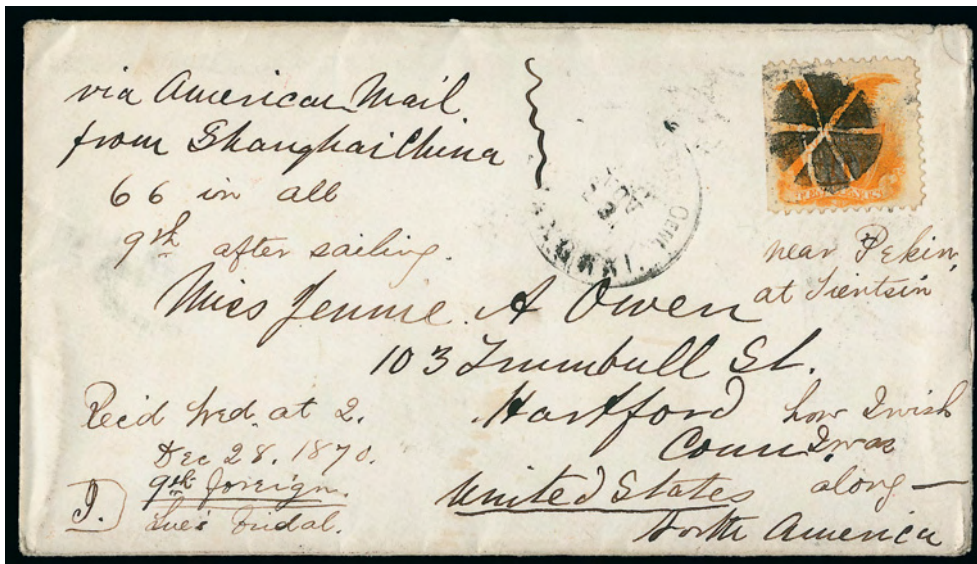 via American Mail
from Shanghai China
66 in all
9th after sailing.
TEN CENTS
near Pekin,
at Tientsin
Miss Jennie A Owen
103 Trumbull St.
Hartford
Conn
United States
North America
how I wish
I was
along—
Rec'd Wed. at 2.
Dec 28. 1870.
9th foreign.
Sue's bridal.